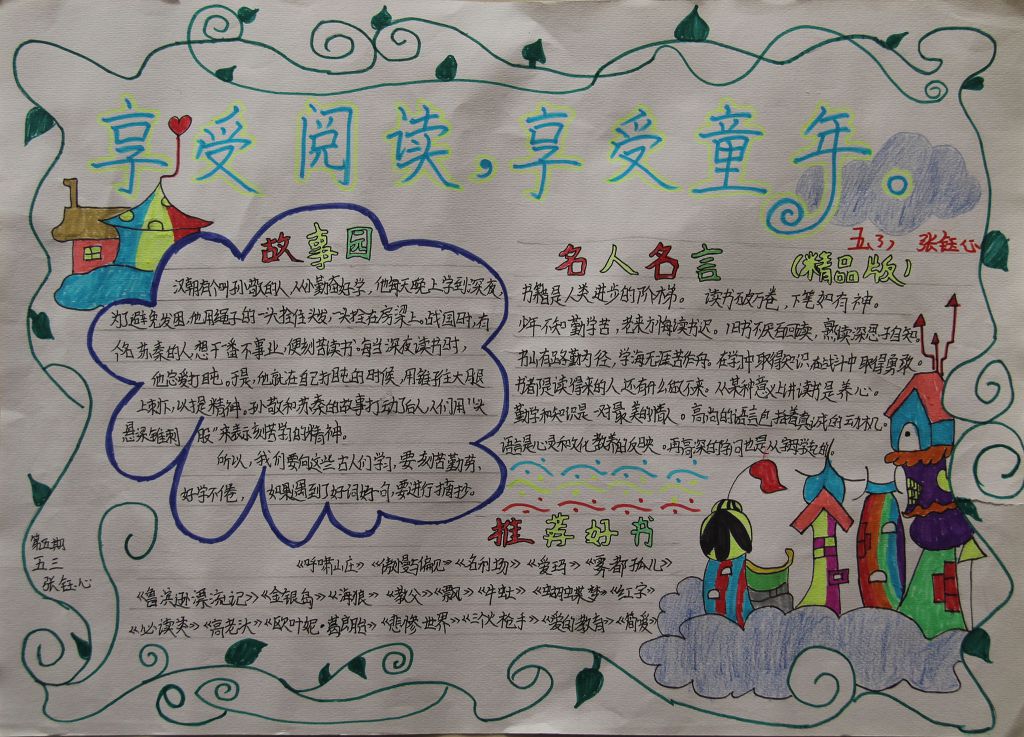 享受阅读，享受童年。
五，3， 张钰心
故事园
汉朝有个叫孙敬的人，从小勤奋好学，他每天晚上学到深夜，
为了避免发困，他用绳子的一头拴住头发，一头拴在房梁上。战国时，有
个名苏秦的人，想干番不事业，便刻苦读书。每当深夜读书时，
他总爱打盹。于是，他就在自己打盹的时候，用锥往大腿
上刺下，以提精神。孙敬和苏秦的故事打动了后人，人们用"头
悬梁锥刺 股"来表示刻苦学习的精神。
所以，我们要向这些古人们学习，要刻苦勤劳、
好学不倦， 如果遇到了好词好句，要进行摘抄。
名人名言 (精品版)
书籍是人类进步的阶梯。 读书破万卷，下笔如有神。
少年不知勤学苦，老来方悔读书迟。旧书不厌百回读，熟读深思子自知。
书山有路勤为径，学海无涯苦作舟。在学习中取得知识，在战斗中取得勇敢。
书都是读得来的人，还有什么做不来。从某种意义上讲读书是养心。
勤学和知识是一对最美的情人。高尚的语言包括着真诚的动机。
语言是心灵和文化教养的反映。再高深的学问也是从字母学起的。
推荐好书
《呼啸山庄》《傲慢与偏见》《名利场》《爱玛》《雾都孤儿》
《鲁滨逊漂流记》《金银岛》《海狼》《教父》《飘》《牛虻》《蝴蝶梦》《红字》
《必读类》《高老大》《欧叶妮·葛朗台》《悲惨世界》《三个火枪手》《爱的教育》《简爱》
第五期
五三
张钰心